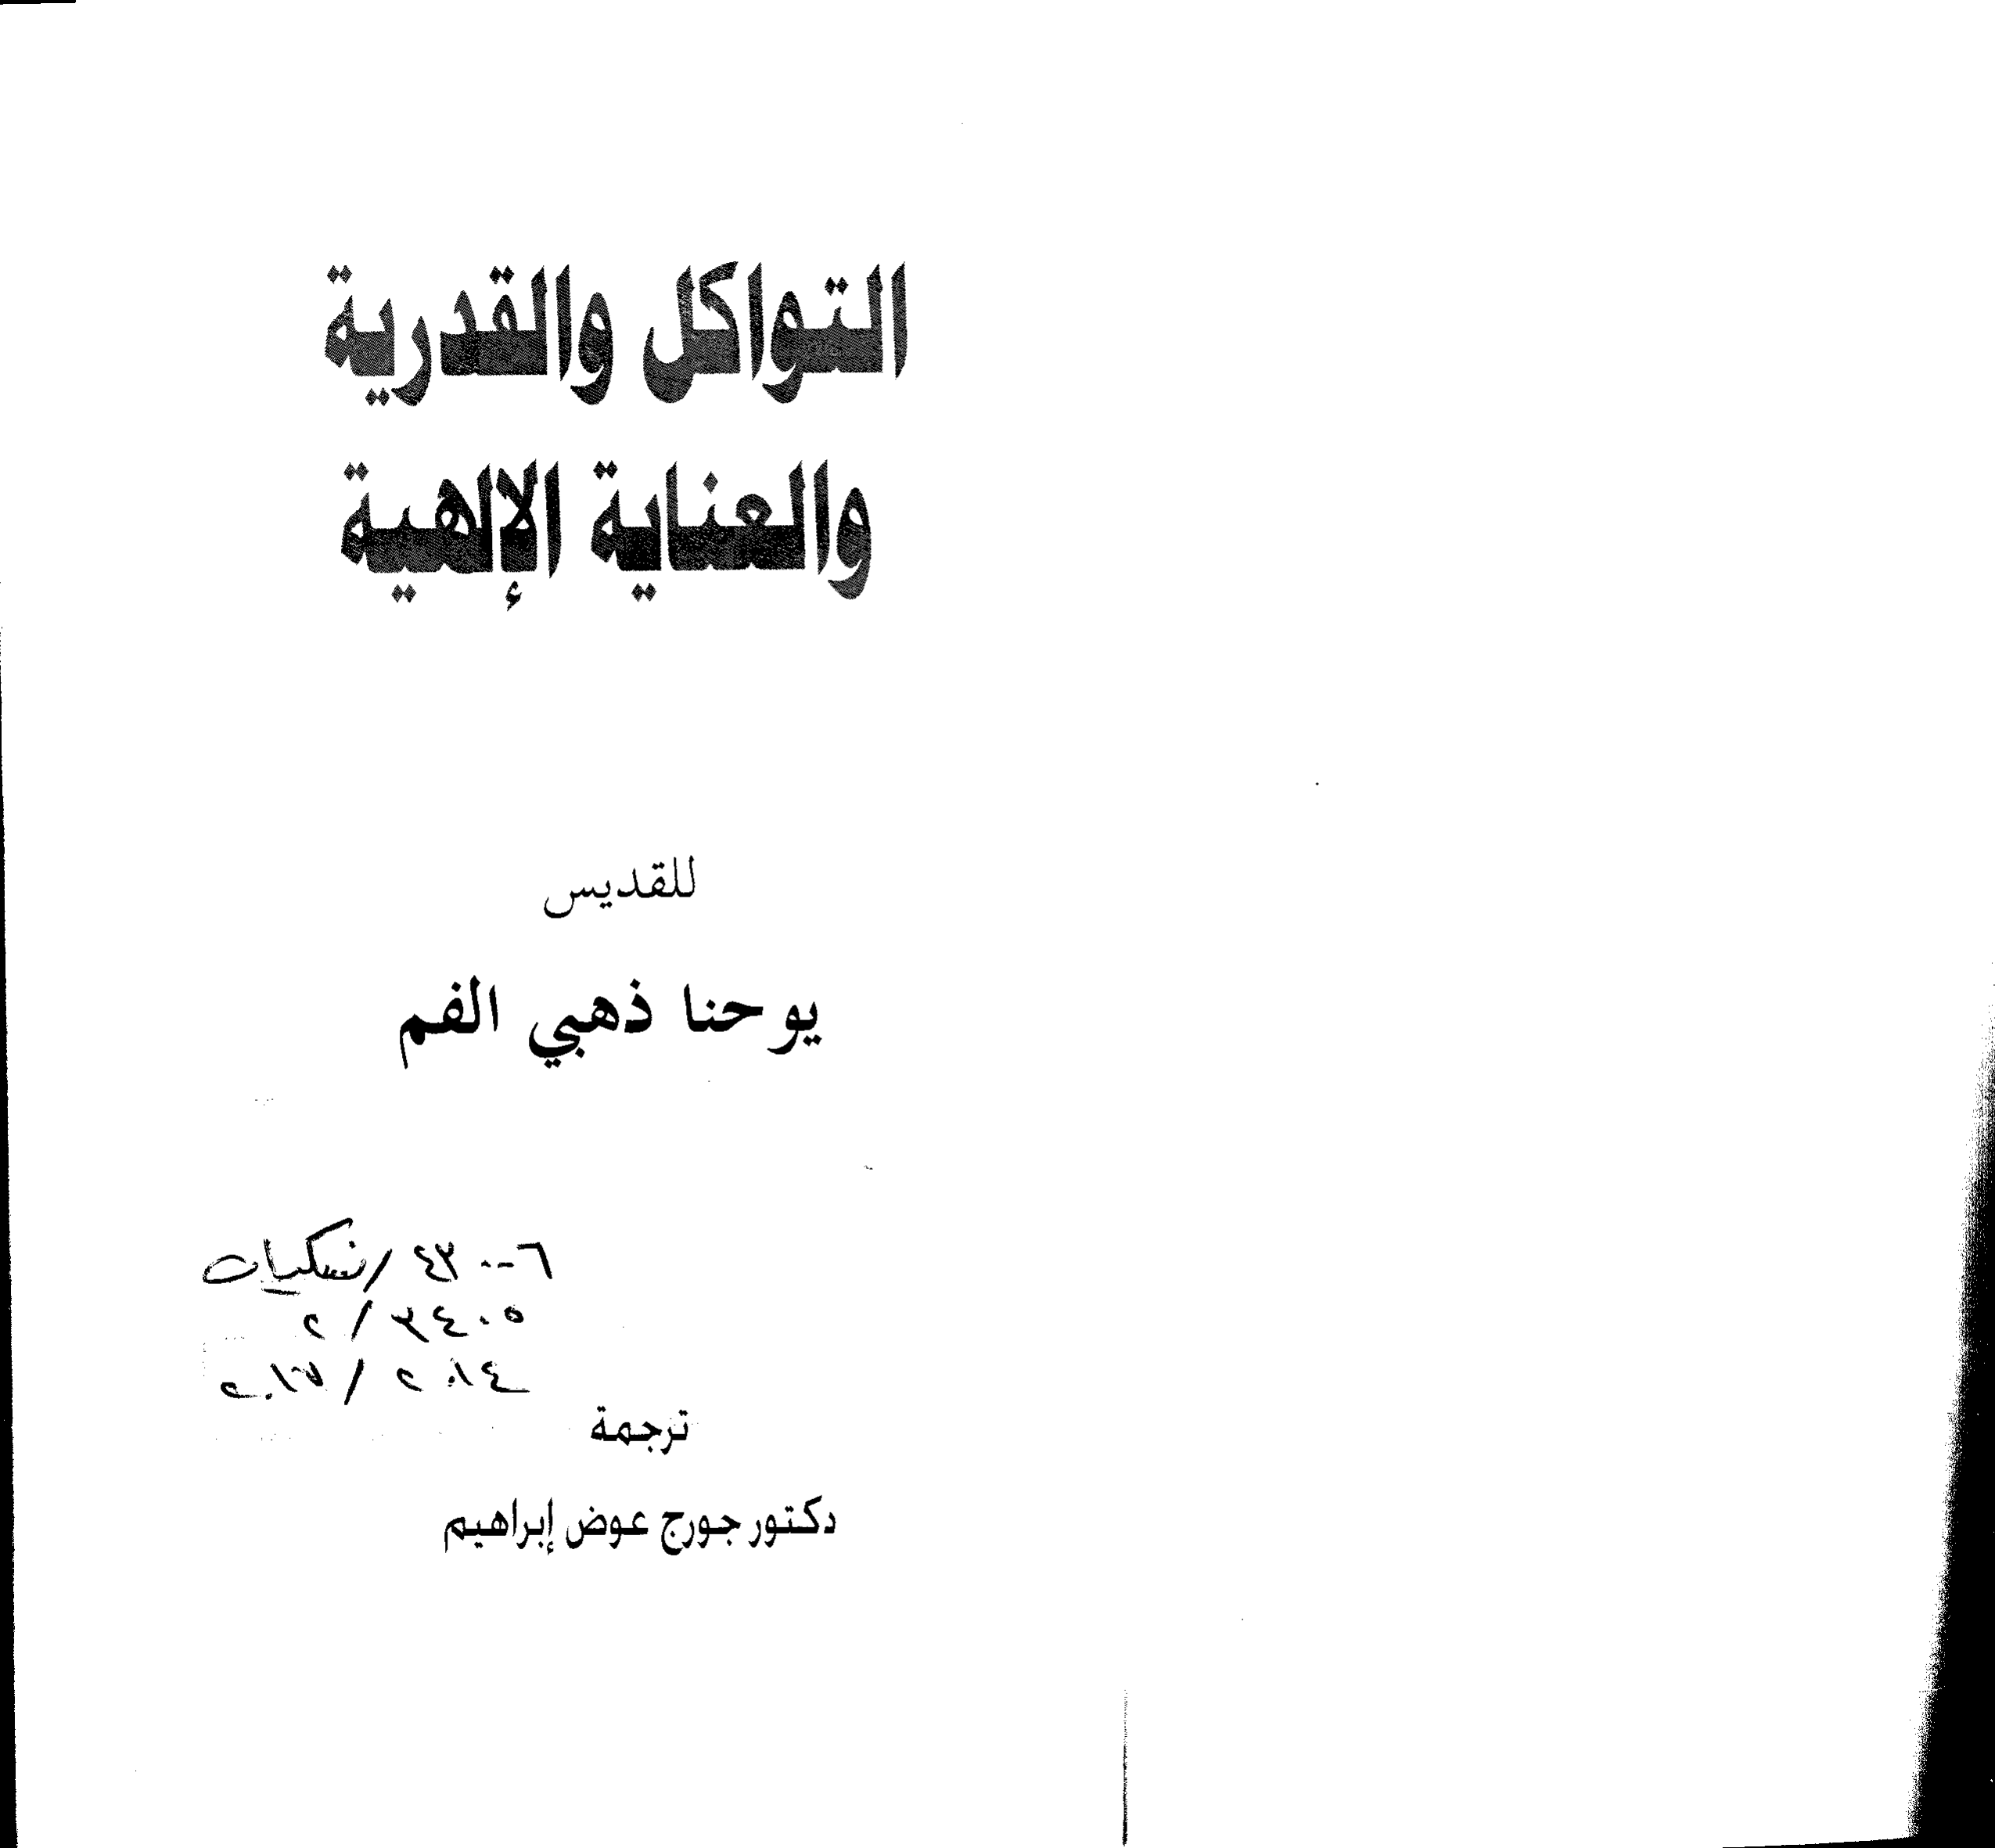 التواكل والقدرية
والعناية الإلهية
للقديس
يوحنا ذهبي الفم
نسكيات
ترجمة
دكتور جورج عوض إبراهيم